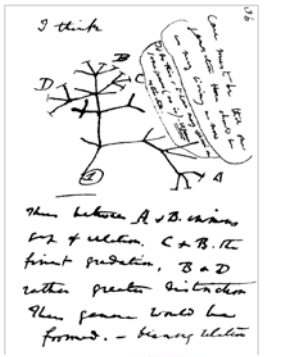 36
I think
Case must be that one
generation then should be
as many living as now
To do this & to have many species in
same genus (as is). requires
extinction
B
D
C
A
1
Thus between A & B. immens
gap of relation. C & B. the
finest gradation, B & D
rather greater distinction
Thus genera would be
formed. — bearing relation